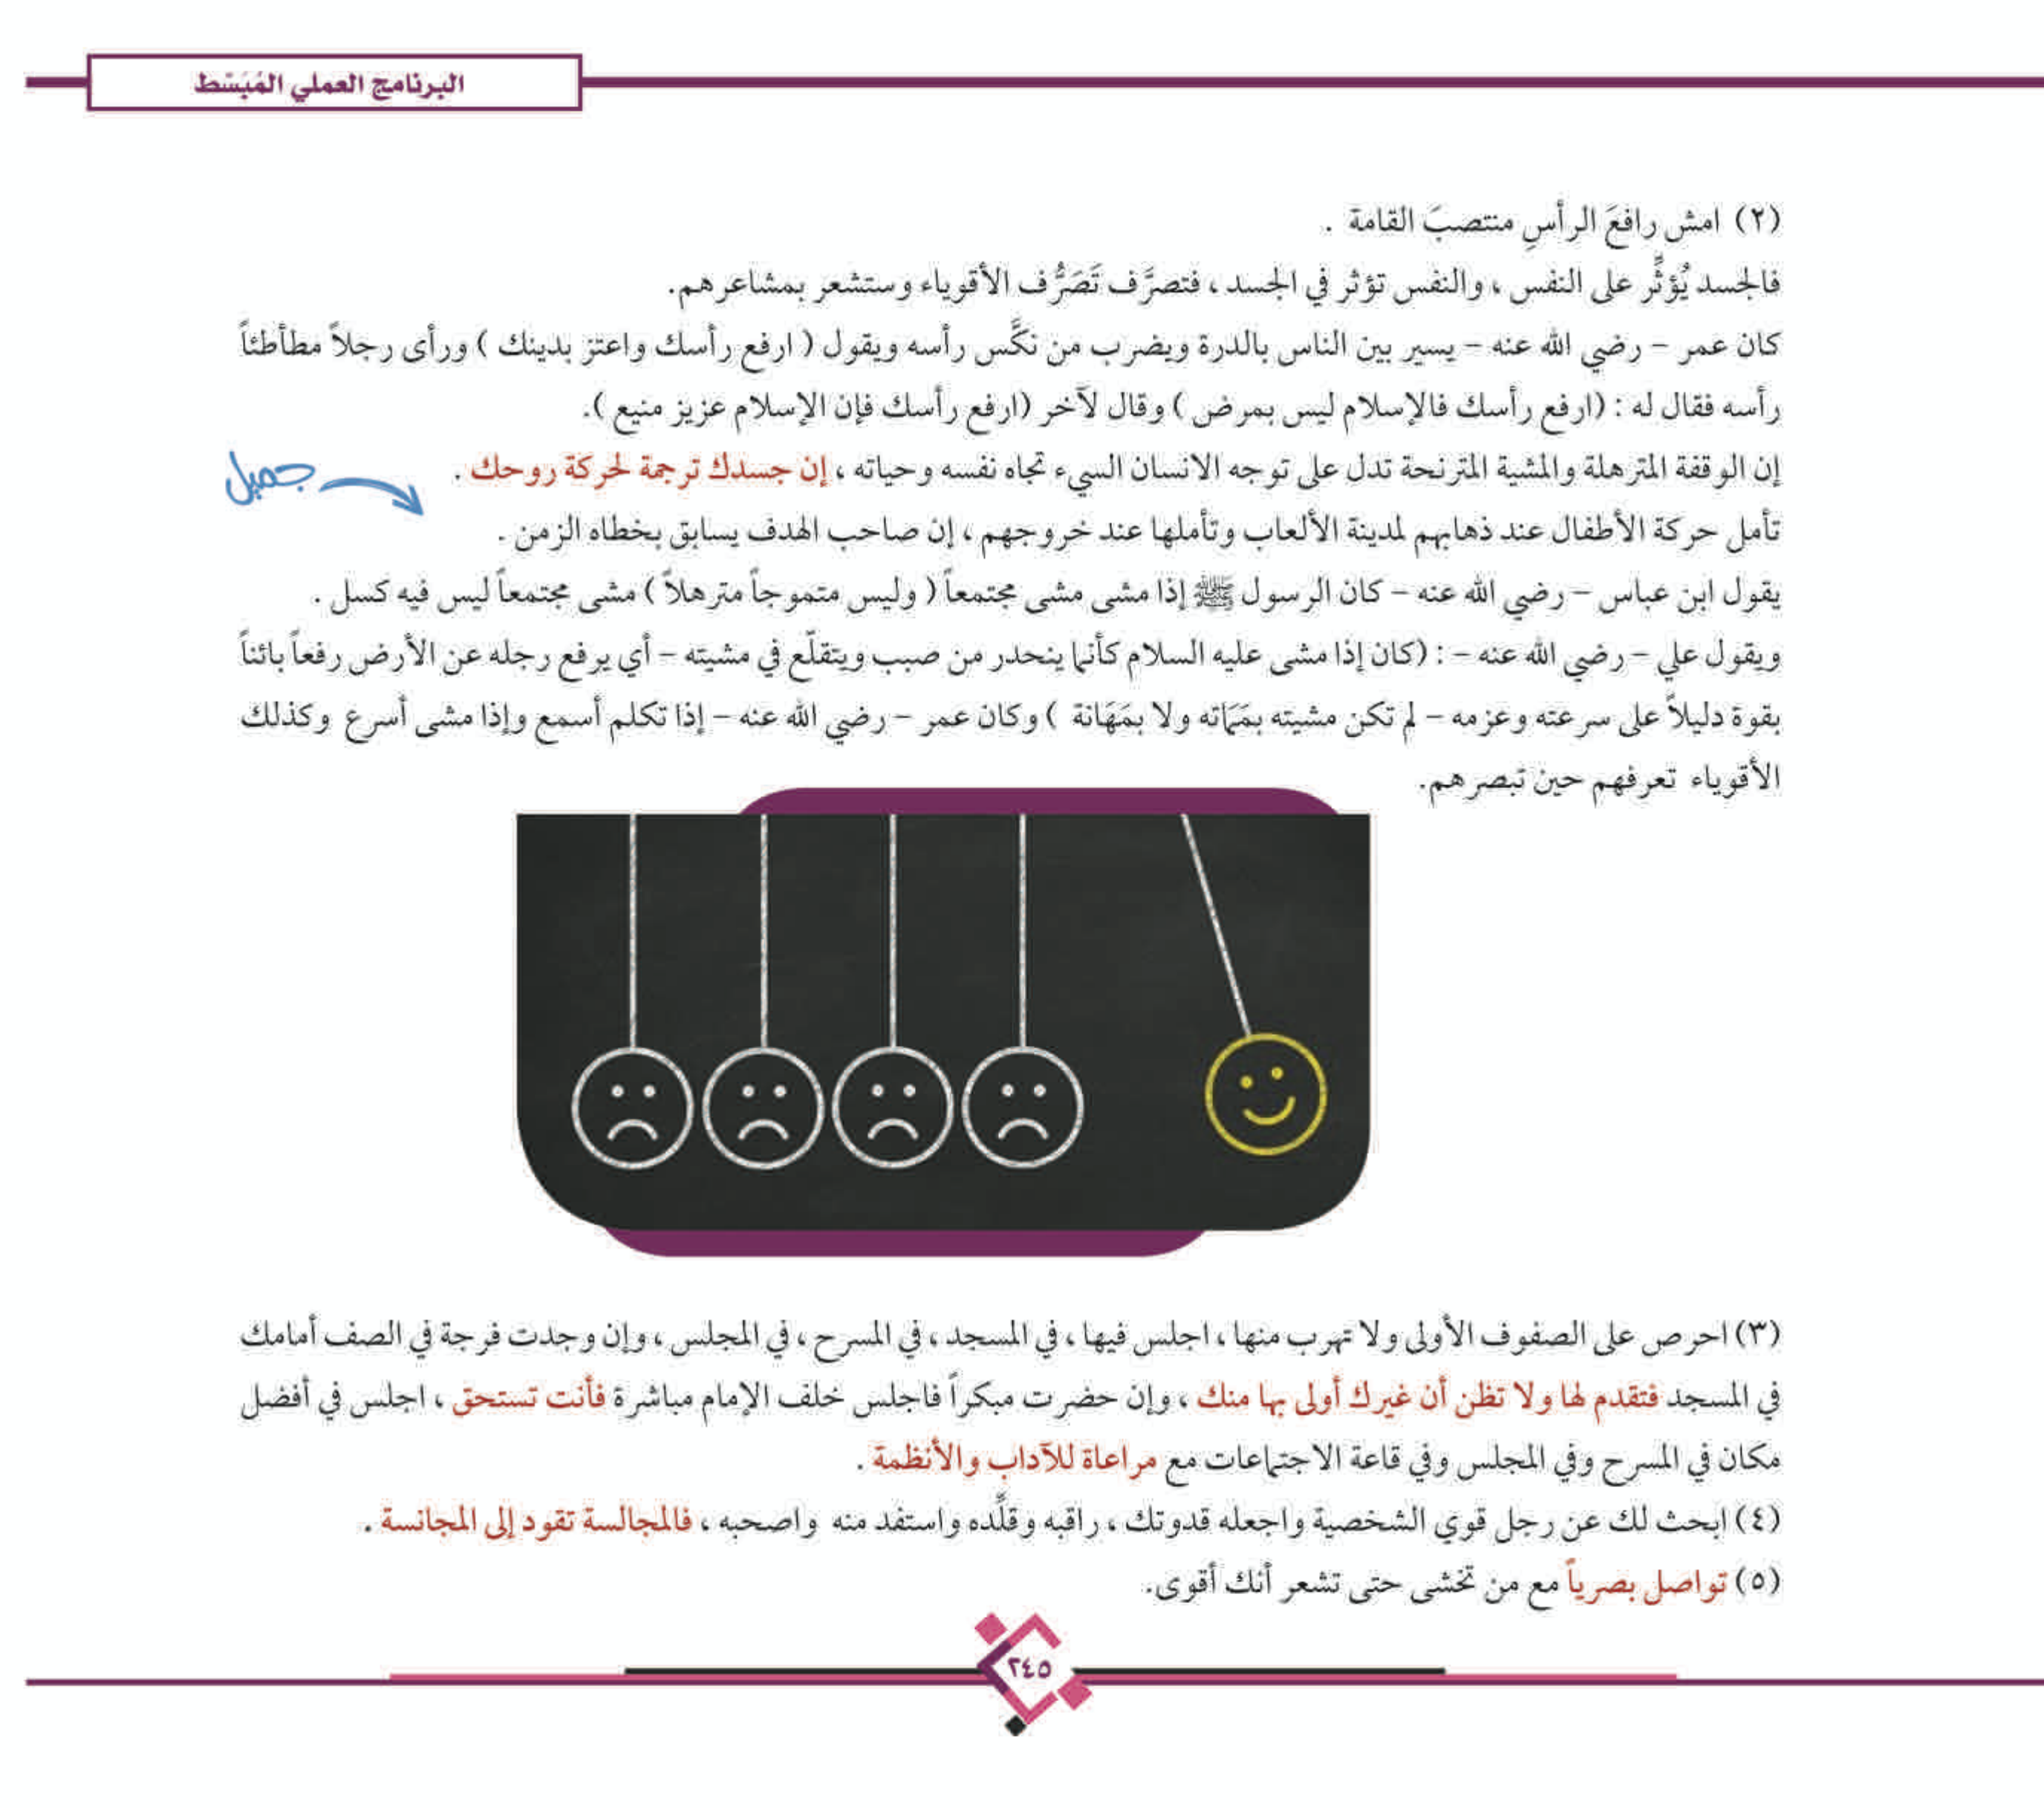 البرنامج العملي المُبَسّط
(٢) امش رافعَ الرأسِ منتصبَ القامة .
فالجسد يُؤثِّر على النفس ، والنفس تؤثر في الجسد ، فتصرَّف تَصَرُّف الأقوياء وستشعر بمشاعرهم.
كان عمر – رضي الله عنه – يسير بين الناس بالدرة ويضرب من نكَّس رأسه ويقول ( ارفع رأسك واعتز بدينك ) ورأى رجلاً مطأطئاً
رأسه فقال له : (ارفع رأسك فالإسلام ليس بمرض ) وقال لآخر (ارفع رأسك فإن الإسلام عزيز منيع ).
إن الوقفة المترهلة والمشية المترنحة تدل على توجه الانسان السيء تجاه نفسه وحياته ، إن جسدك ترجمة لحركة روحك .
جميل
تأمل حركة الأطفال عند ذهابهم لمدينة الألعاب وتأملها عند خروجهم ، إن صاحب الهدف يسابق بخطاه الزمن .
يقول ابن عباس – رضي الله عنه – كان الرسول ﷺ إذا مشى مشى مجتمعاً ( وليس متموجاً مترهلاً ) مشى مجتمعاً ليس فيه كسل .
ويقول علي – رضي الله عنه – : (كان إذا مشى عليه السلام كأنما ينحدر من صبب ويتقلّع في مشيته – أي يرفع رجله عن الأرض رفعاً بائناً
بقوة دليلاً على سرعته وعزمه – لم تكن مشيته بمَمَاته ولا بمَهَانة ) وكان عمر – رضي الله عنه – إذا تكلم أسمع وإذا مشى أسرع وكذلك
الأقوياء تعرفهم حين تبصرهم.
(٣) احرص على الصفوف الأولى ولا تهرب منها ، اجلس فيها ، في المسجد ، في المسرح ، في المجلس ، وإن وجدت فرجة في الصف أمامك
في المسجد فتقدم لها ولا تظن أن غيرك أولى بها منك ، وإن حضرت مبكراً فاجلس خلف الإمام مباشرة فأنت تستحق ، اجلس في أفضل
مكان في المسرح وفي المجلس وفي قاعة الاجتماعات مع مراعاة للآداب والأنظمة .
(٤) ابحث لك عن رجل قوي الشخصية واجعله قدوتك ، راقبه وقلِّده واستفد منه واصحبه ، فالمجالسة تقود إلى المجانسة .
(٥) تواصل بصرياً مع من تخشى حتى تشعر أنك أقوى.
٢٤٥